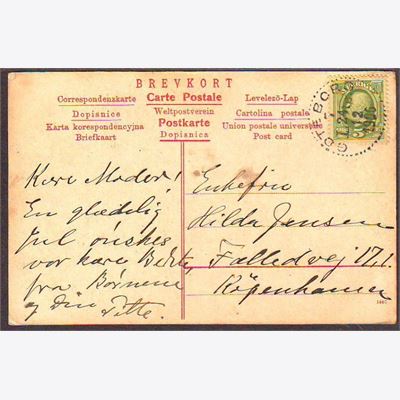 BREVKORT
Correspondenzkarte
Carte Postale
Levelező-Lap
Dopisnice
Weltpostverein
Cartolina postale
Karta korespondencyjna
Postkarte
Union postale universelle
Briefkaart
Dopisnica
Post card
GÖTEBORG
Kære Moder!
En glædelig
Jul ønskes
vor kære
fra Børnene
og Din
Enkefru
Hilda Jensen
Fælledvej 17,1.
Köpenhamn